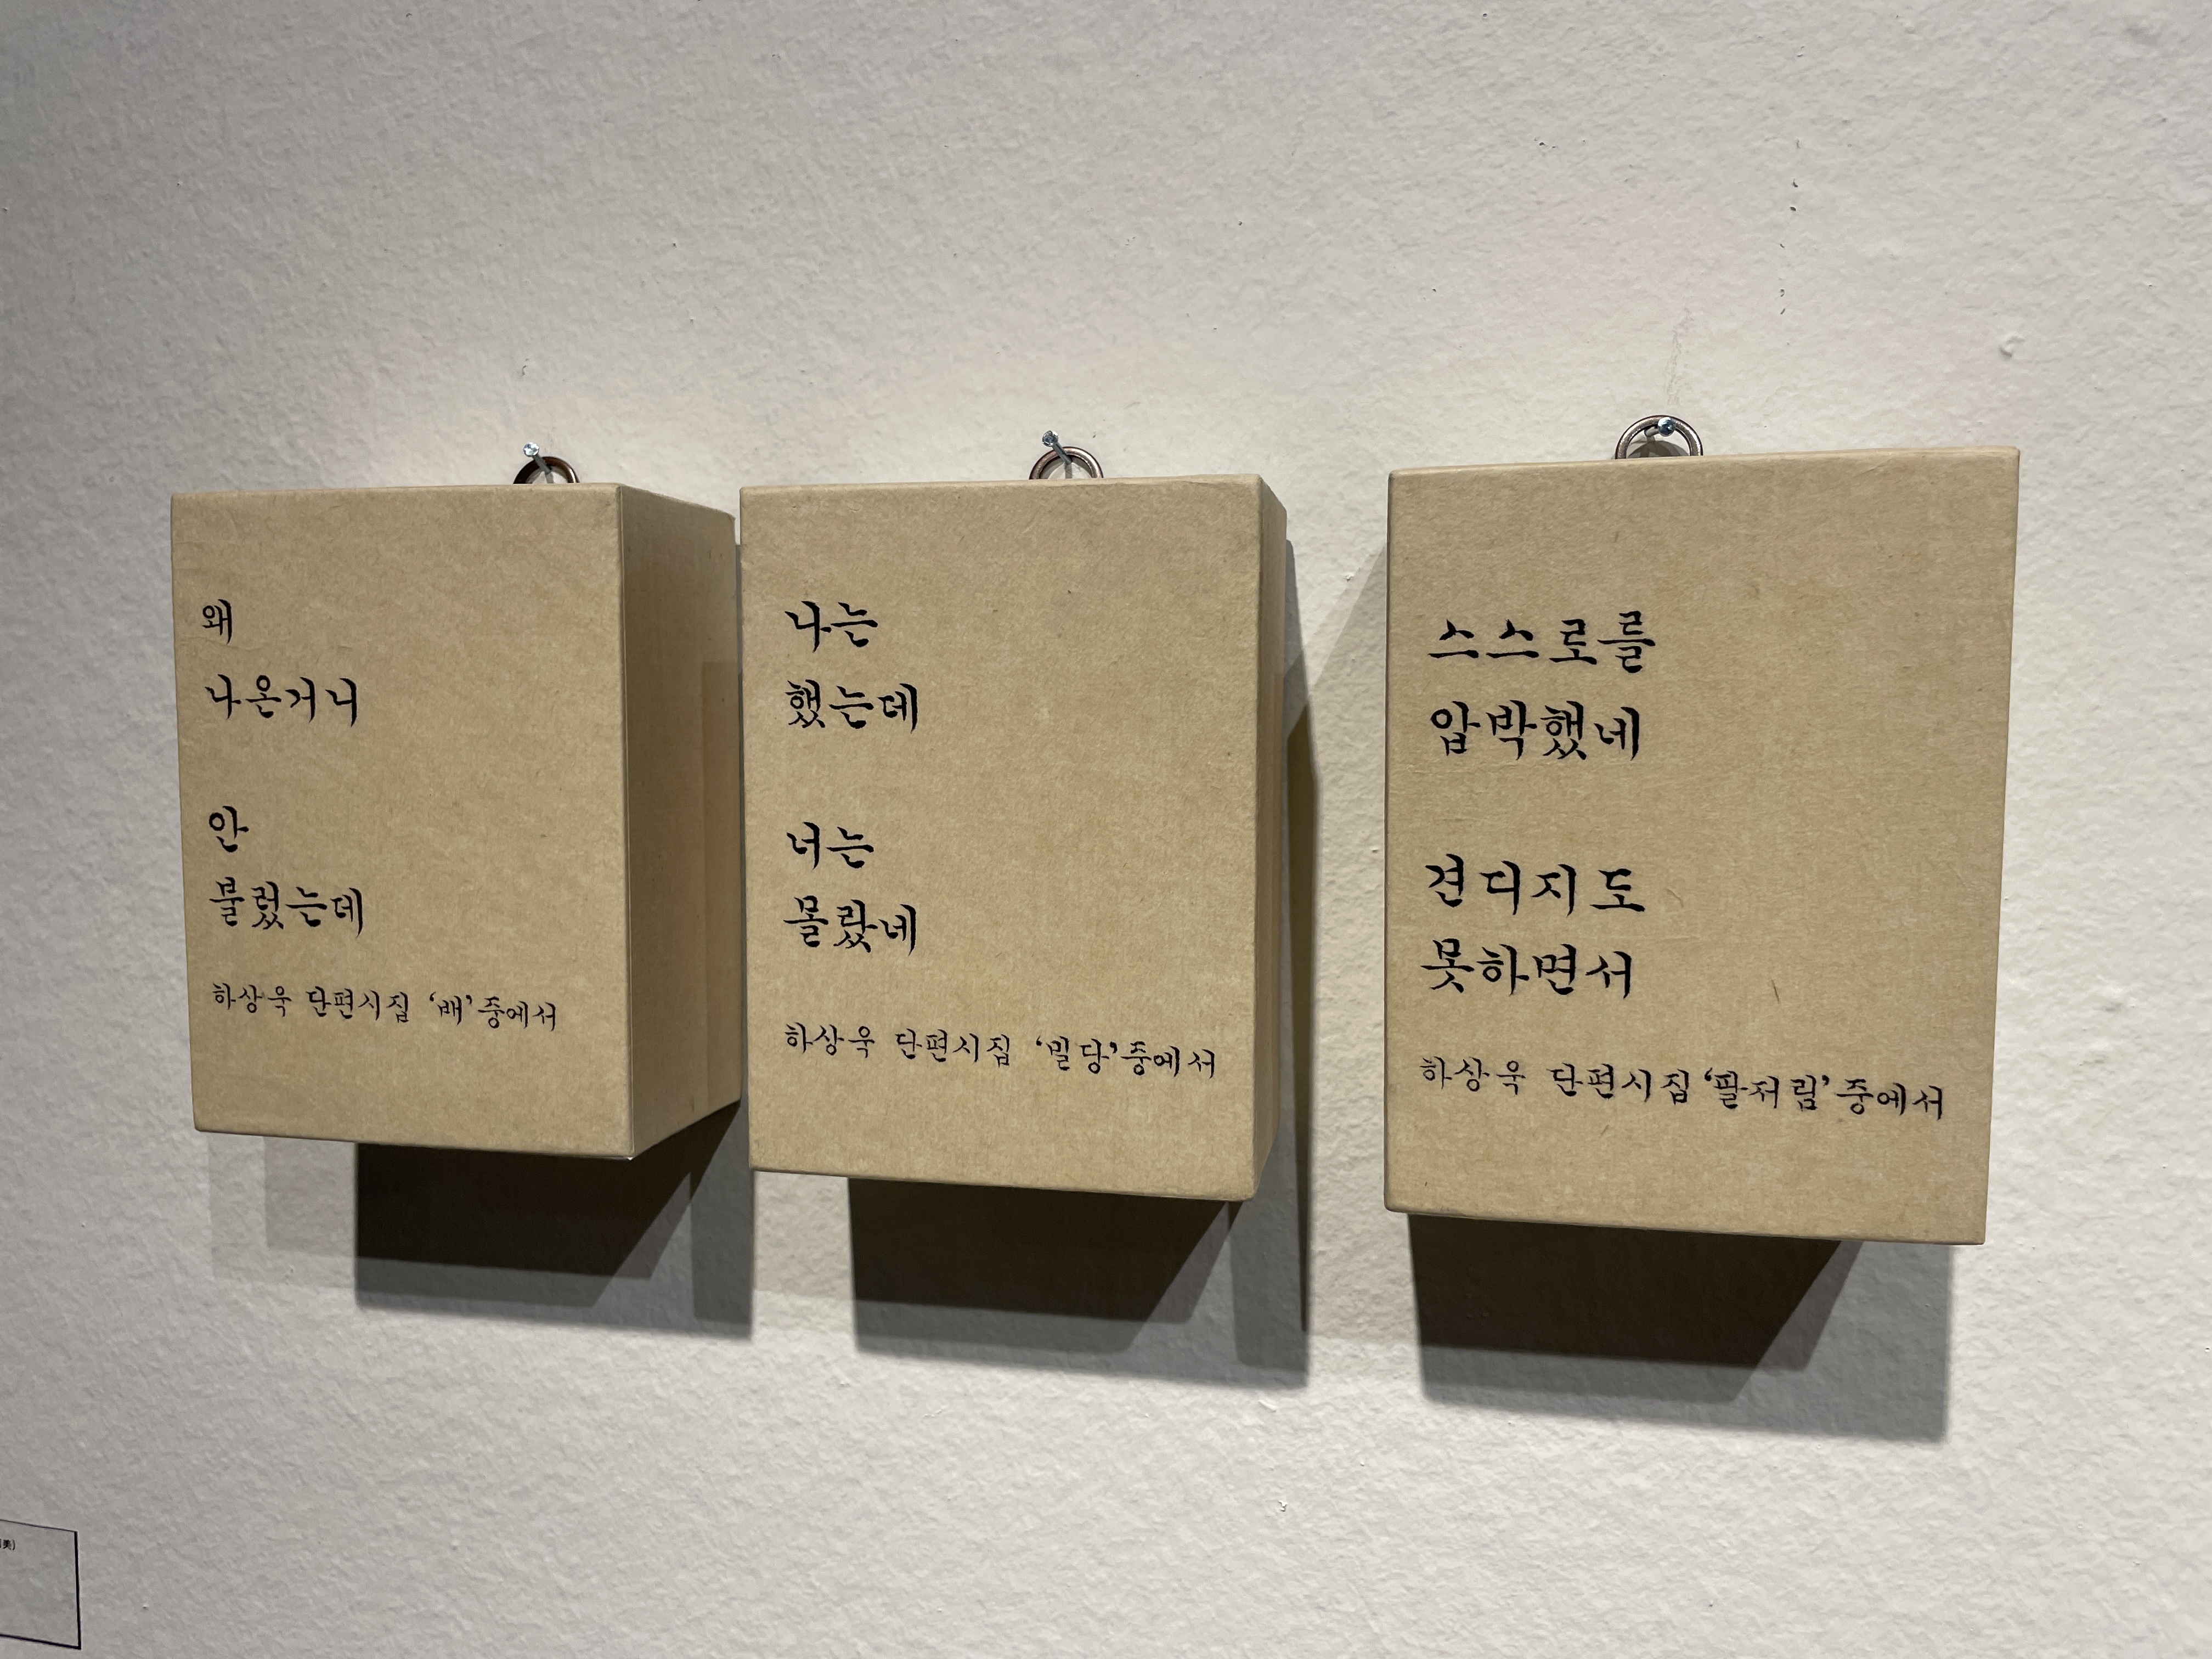 왜
나온거니
안
불렀는데
하상욱 단편시집 '배' 중에서
나는
했는데
너는
몰랐네
하상욱 단편시집 '밀당' 중에서
스스로를
압박했네
견디지도
못하면서
하상욱 단편시집 '팔저림' 중에서
美)